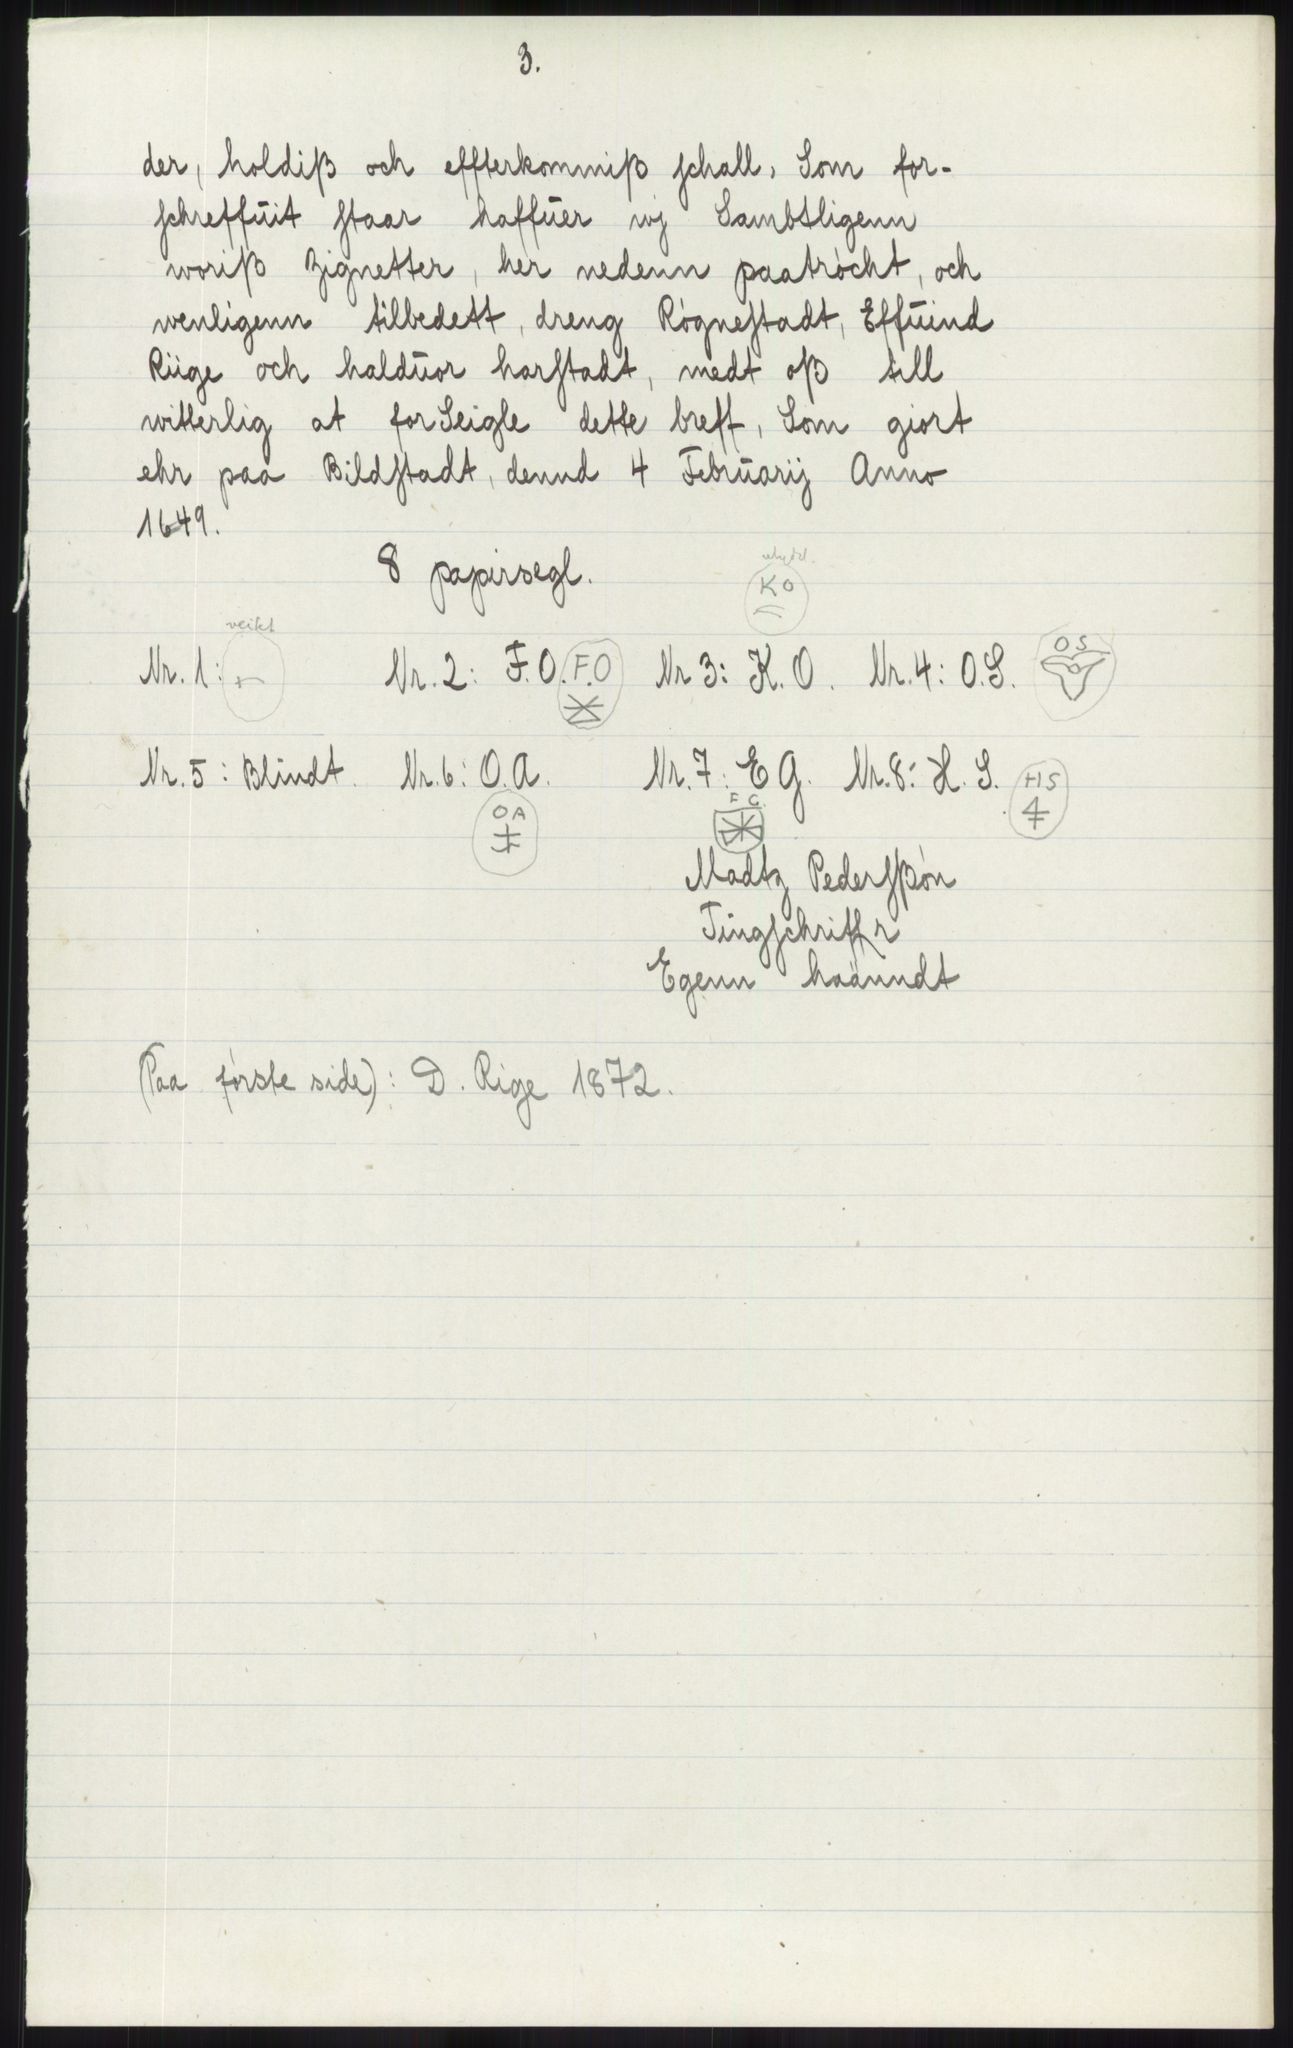 3.
der, holdiß och effterkommiß schall, Som for-
schreffūit staar haffūer wj Sambtligenn
woriß Zignetter, her nedenn paatrócht, och
wenligenn tilbedett, dreng Rógnestadt, Effūind
Riige och haldūor harstadt, medt oß till
witterlig at forSeigle dette breff, Som giort
ehr paa Bildstadt, dennd 4 Febrūarij Anno
1649.
8 papirsegl.
KO
veikt
Nr. 1: Nr. 2: F.O. F.O Nr 3: K.O. Nr. 4: O.S. OS
Nr. 5: Blindt. Nr. 6: O.A. Nr. 7: E G. Nr. 8: H. S. HS
OA
Madtz Pederssón
Tingschriffr
Egenn haanndt
(Paa første side): D. Rige 1872.